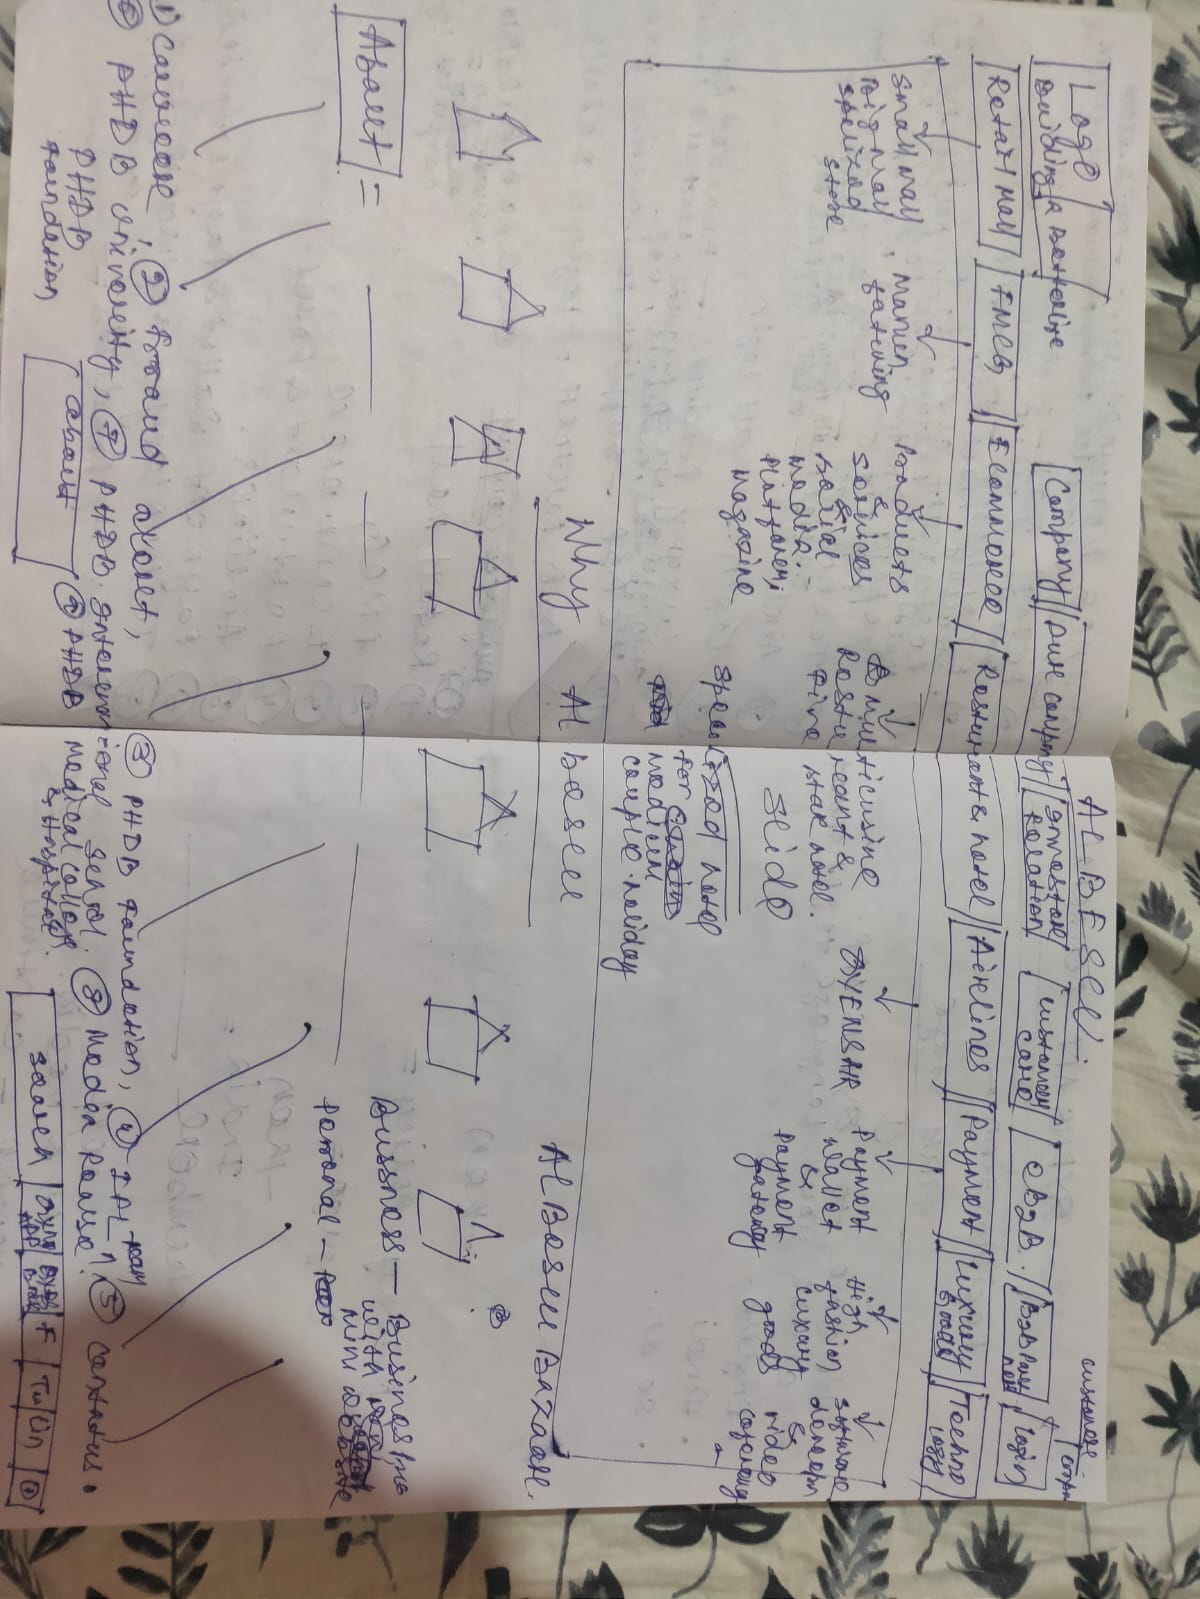 AL BESLU.
customore
Logo
Building a Batterlife
Company
Our company
Invostore Rolation
customory care
eB2B.
B2B
Login
Retail Mall
FMCG
Ecommorco
Rosturant & hotel
Airlinos
Payment
Luxury Goods
Techno logy
Small Mall
Big Mall
spelizod
store
Manun
faturing
Products
&
Sorvicos
&
social
modia.
Platfarm,
Magazine
Multicusine
Rostu reant &
Five star hotel.
Slido
Specilizod hotel
for
Modium
couplo holiday
OYENSAIR
Payment
Wallet
&
Payment
gateway
High
fashion
Luxury
goods
Software
&
video
Why Al Boslu
Al Boslu Bazaar.
Bussnoss — Businos
with
mini website
Porsonal —
About =
1) carreore, ② Fraud alort, ③ PHDB Foundation, ④ IPL ⑤ contatus.
⑥ PHDB Univorsity, ⑦ PHDB International School. ⑧ Modia Rousa
PHDB
Foundation
⑨ PHDB Medical college
& Hospital.
about
Soarch
APP
F
Tw
Lin